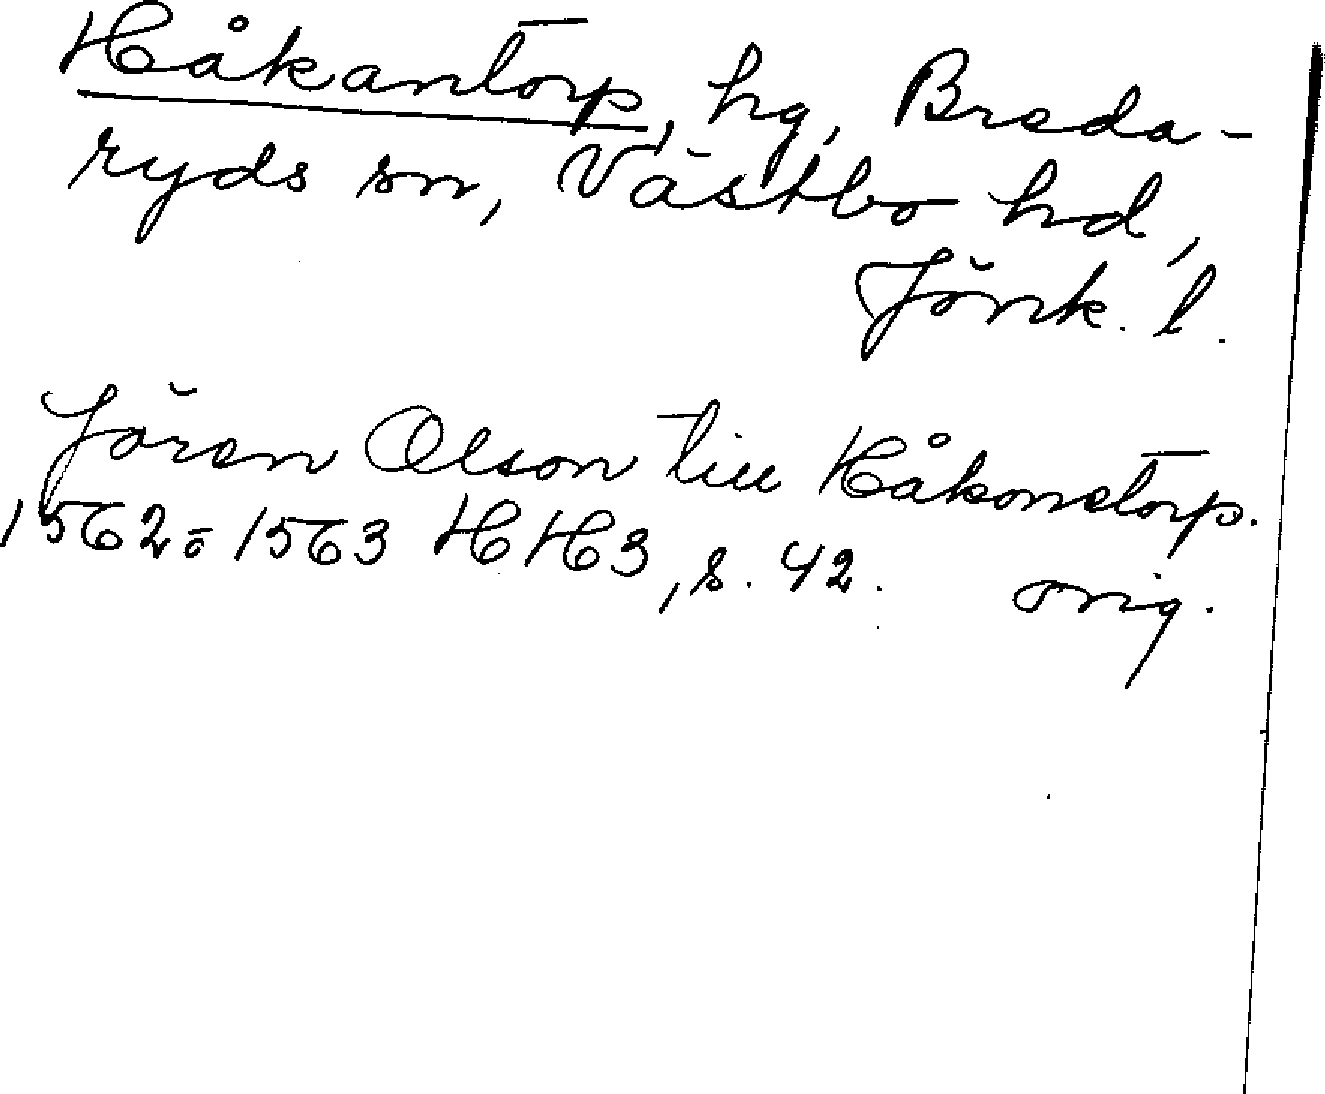 Håkantorp, hg, Breda-
ryds sn, Västbo hd,
Jönk. l.
Jören Olson till Håkonstorp.
1562-1563 HH3, s. 42. orig.